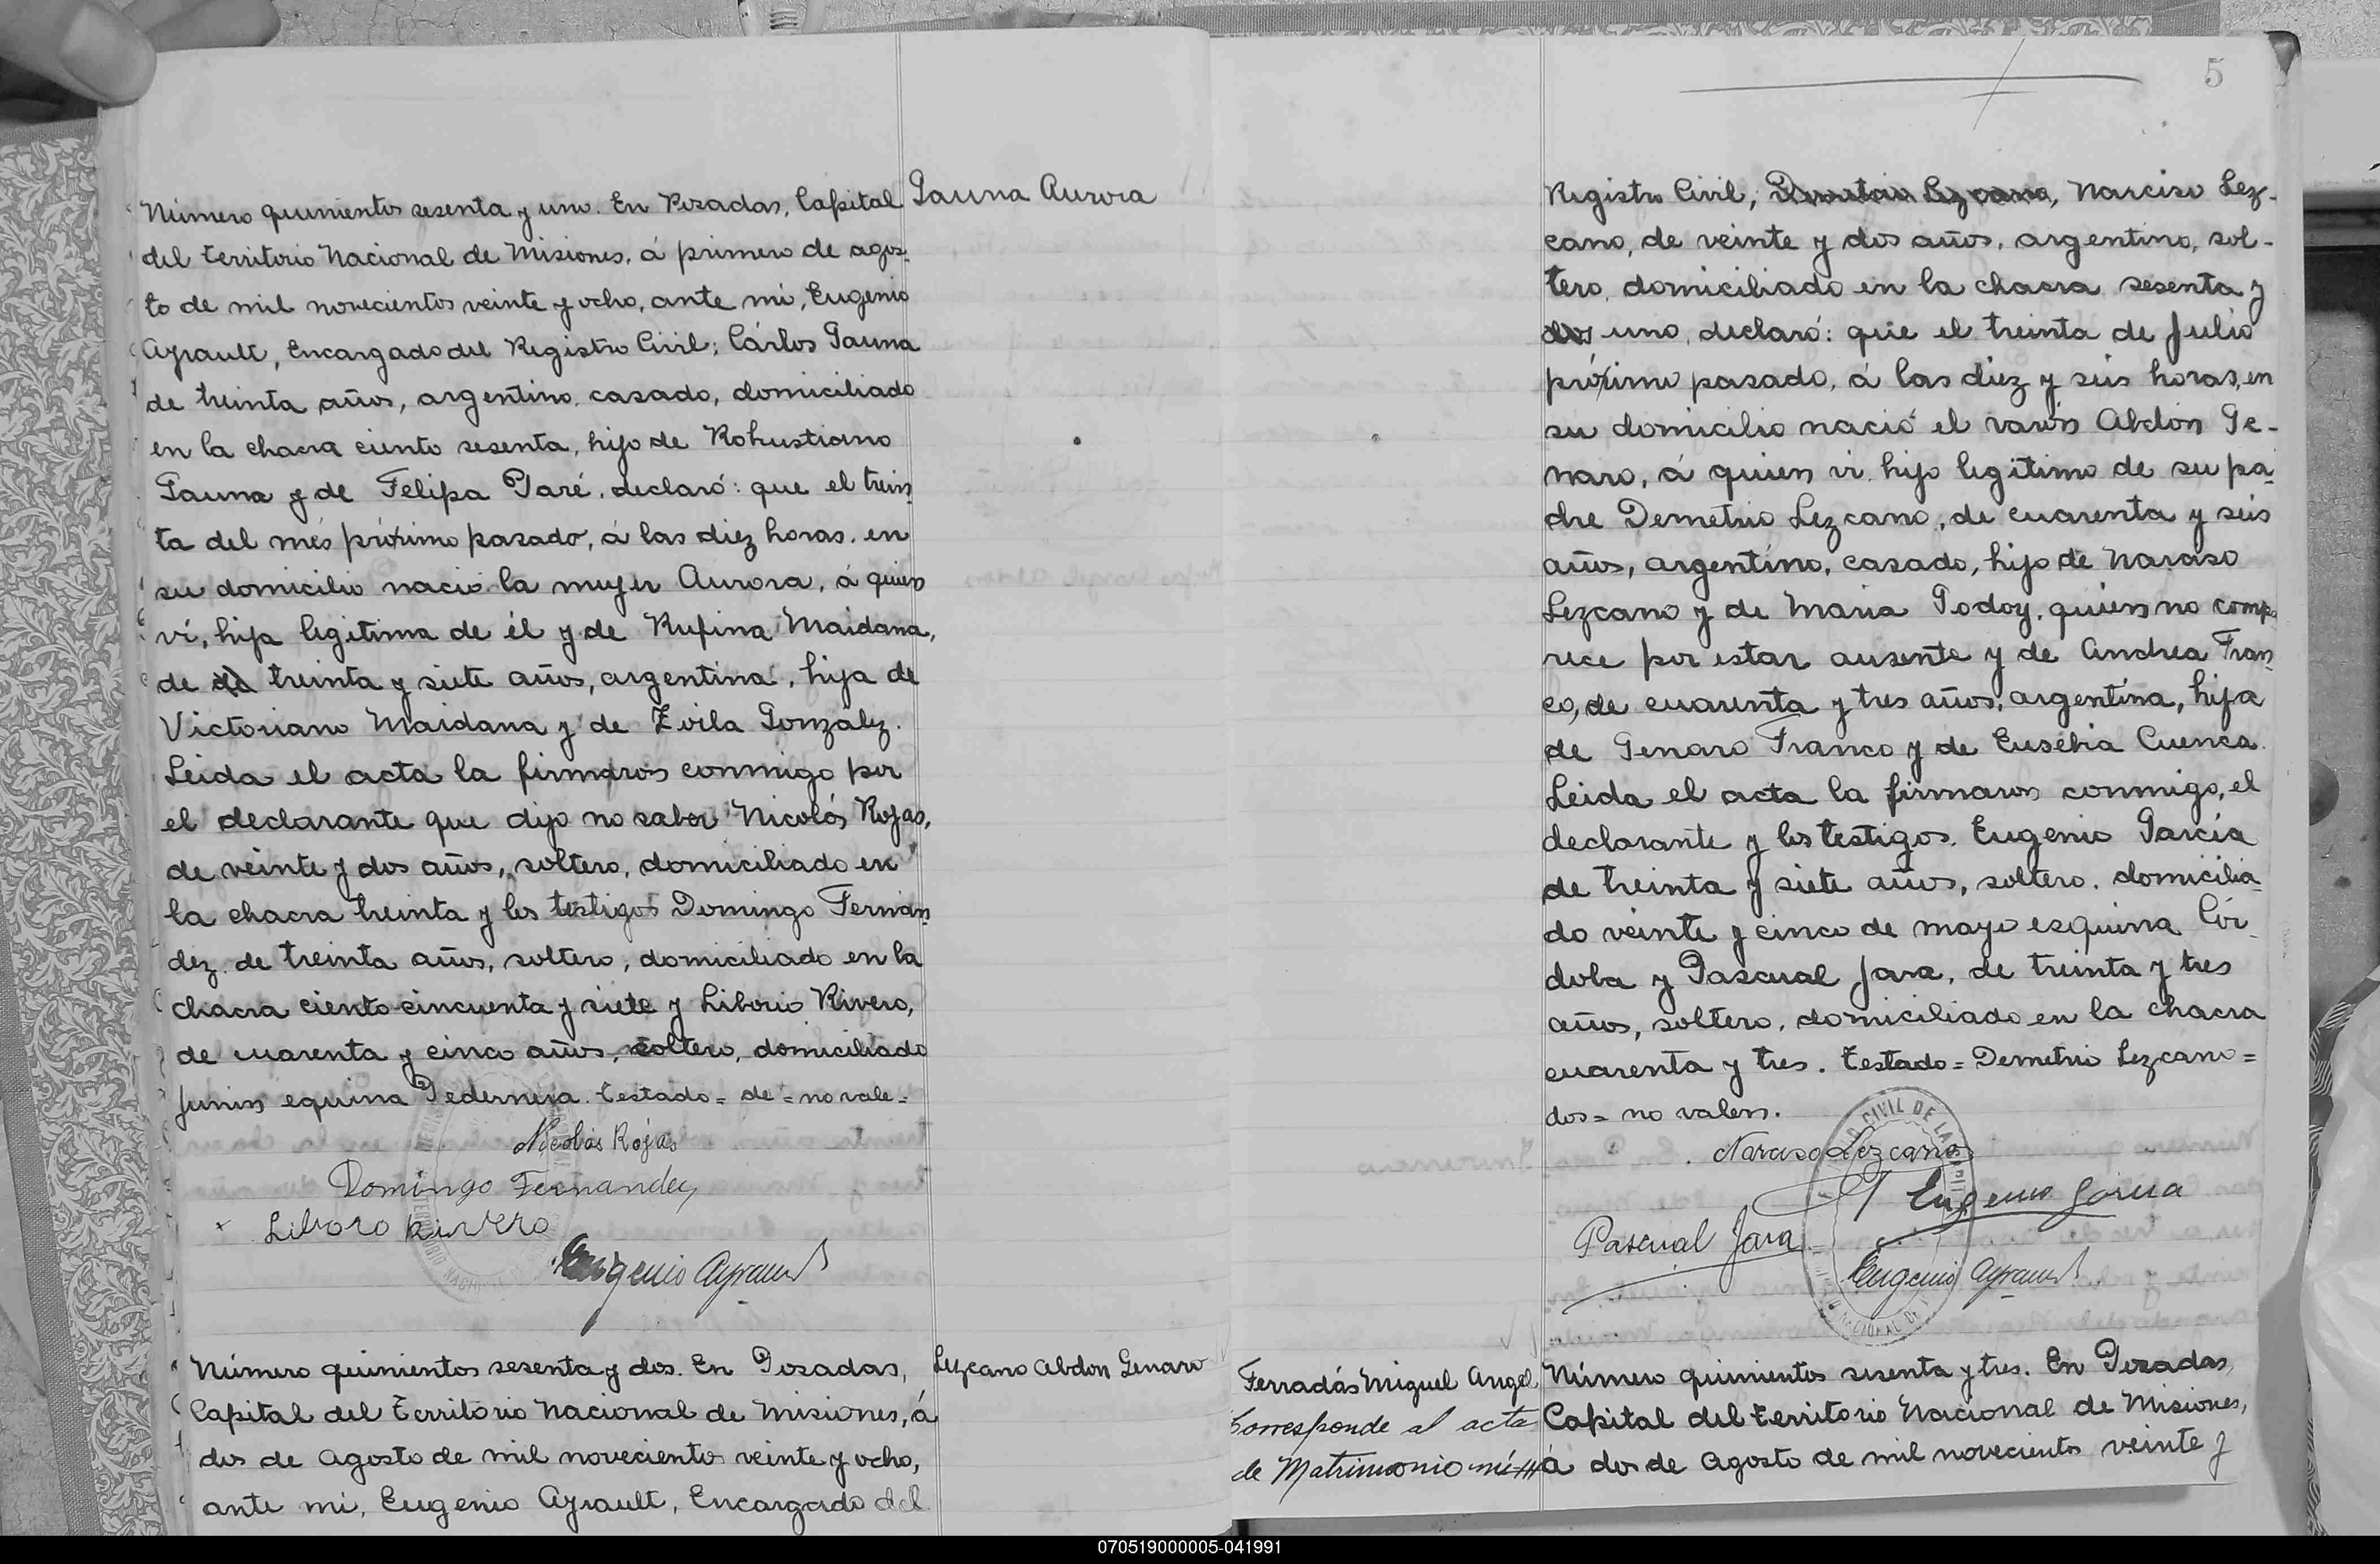 Gauna Aurora
Número quinientos sesenta y uno. En Posadas, Capital
del territorio Nacional de Misiones, á primero de agos-
to de mil novecientos veinte y ocho, ante mi, Eugenio
Ayrault, Encargado del Registro Civil; Cárlos Gauna
de treinta años, argentino, casado, domiciliado
en la chacra ciento sesenta, hijo de Robustiano
Gauna y de Felipa Paré, declaró: que el trein-
ta del més próximo pasado, á las diez horas, en
su domicilio nació la mujer Aurora, á quien
ví, hija legítima de él y de Rufina Maidana,
de treinta y siete años, argentina, hija de
Victoriano Maidana y de Zoila Gonzalez.
Leida el acta la firmaron conmigo por
el declarante que dijo no saber Nicolás Rojas,
de veinte y dos años, soltero, domiciliado en
la chacra treinta y los testigos Domingo Fernán-
dez, de treinta años, soltero, domiciliado en la
chacra ciento cincuenta y siete y Liborio Rivero,
de cuarenta y cinco años, soltero, domiciliado
Junin equina Pedernera. Testado = de = no vale =
Nicolás Rojas
Domingo Fernandez
Liboro Rivero
Eugenio Ayrault
Lezcano Abdon Genaro
Número quinientos sesenta y dos. En Posadas,
Capital del Territorio Nacional de Misiones, á
dos de Agosto de mil novecientos veinte y ocho,
ante mi, Eugenio Ayrault, Encargado del
5
Registro Civil, Demetrio Lezcano, Narciso Lez-
cano, de veinte y dos años, argentino, sol-
tero, domiciliado en la chacra sesenta y
dos uno, declaró: que el treinta de Julio
próximo pasado, á las diez y seis horas, en
su domicilio nació el varón Abdón Ge-
naro, á quien vi, hijo legítimo de su pa-
dre Demetrio Lezcano, de cuarenta y seis
años, argentino, casado, hijo de Narciso
Lezcano y de Maria Godoy, quien no compa
rece por estar ausente y de Andrea Fran-
co, de cuarenta y tres años, argentina, hija
de Genaro Franco y de Eusebia Cuenca.
Leida el acta la firmaron conmigo, el
declarante y los testigos. Eugenio García
de treinta y siete años, soltero, domicilia-
do veinte y cinco de mayo esquina Cór-
doba y Pascual Jara, de treinta y tres
años, soltero, domiciliado en la chacra
cuarenta y tres. Testado = Demetrio Lezcano =
dos = no valen.
Narciso Lezcano
Eugenio Garcia
Pascual Jara
Eugenio Ayrault
Ferradás Miguel Angel
Corresponde al acta
de Matrimonio
Número quinientos sesenta y tres. En Posadas,
Capital del territorio Nacional de Misiones,
á dos de Agosto de mil novecientos veinte y
070519000005-041991